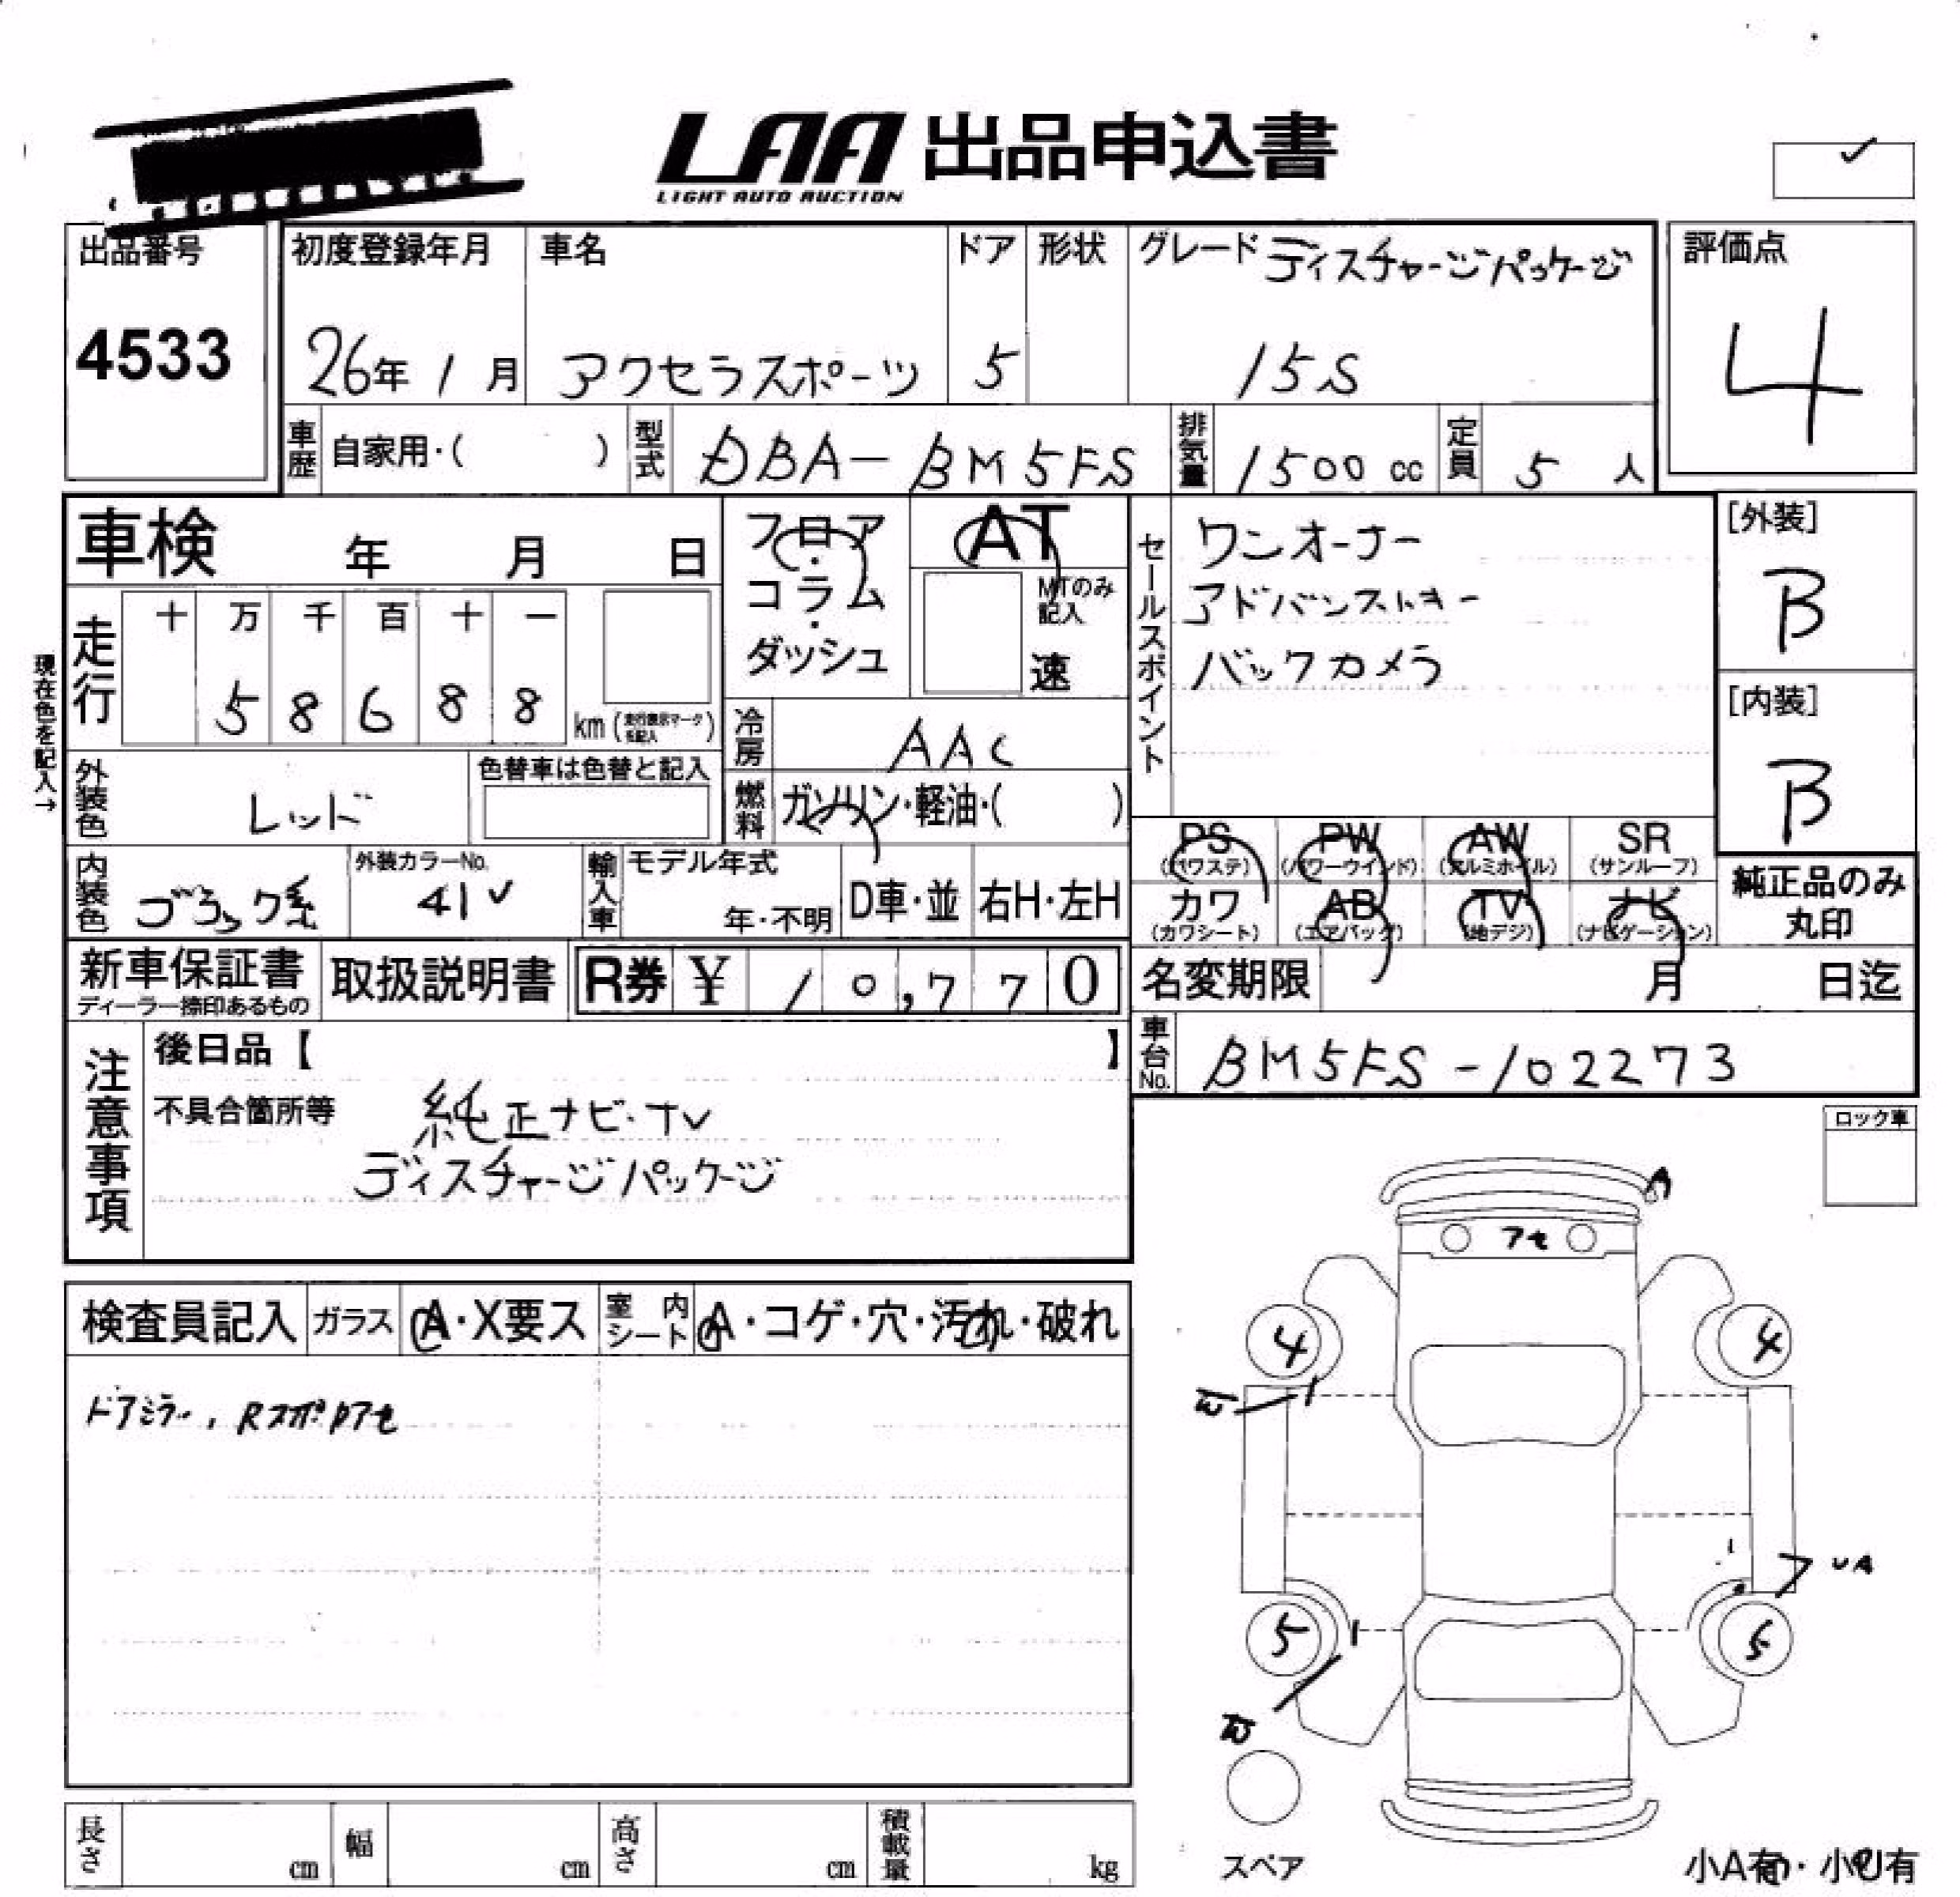 LAA 出品申込書
LIGHT AUTO AUCTION
出品番号
4533
初度登録年月
26年 1月
車名
アクセラスポーツ
ドア
5
形状
グレード ディスチャージパッケージ
15S
評価点
4
車歴 自家用・( )
型式 DBA-BM5FS
排気量 1500 cc
定員 5 人
車検 年 月 日
フロア・コラム・ダッシュ
AT
MTのみ記入
速
セールスポイント
ワンオーナー
アドバンストキー
バックカメラ
[外装]
B
[内装]
B
現在色を記入→
走行
十 万 千 百 十 一
5 8 6 8 8 km (走行表示マークを記入)
冷房 AAC
外装色 レッド
色替車は色替と記入
燃料 ガソリン・軽油・( )
内装色 ブラック系
外装カラーNo.
41V
輸入車 モデル年式
年・不明
D車・並
右H・左H
PS (パワステ)
PW (パワーウインド)
AW (アルミホイル)
SR (サンルーフ)
カワ (カワシート)
AB (エアバッグ)
TV (地デジ)
ナビ (ナビゲーション)
純正品のみ丸印
新車保証書
ディーラー捺印あるもの
取扱説明書
R券 ¥ 10,770
名変期限 月 日迄
車台No. BM5FS-102273
注意事項
後日品【 】
不具合箇所等
純正ナビ・TV
ディスチャージパッケージ
ロック車
検査員記入
ガラス A・X要ス
室内シート A・コゲ・穴・汚れ・破れ
ドアミラー, Rスポ
A
アセ
4 4
UA
5 5
スペア
小A有・小U有
長さ cm
幅 cm
高さ cm
積載量 kg